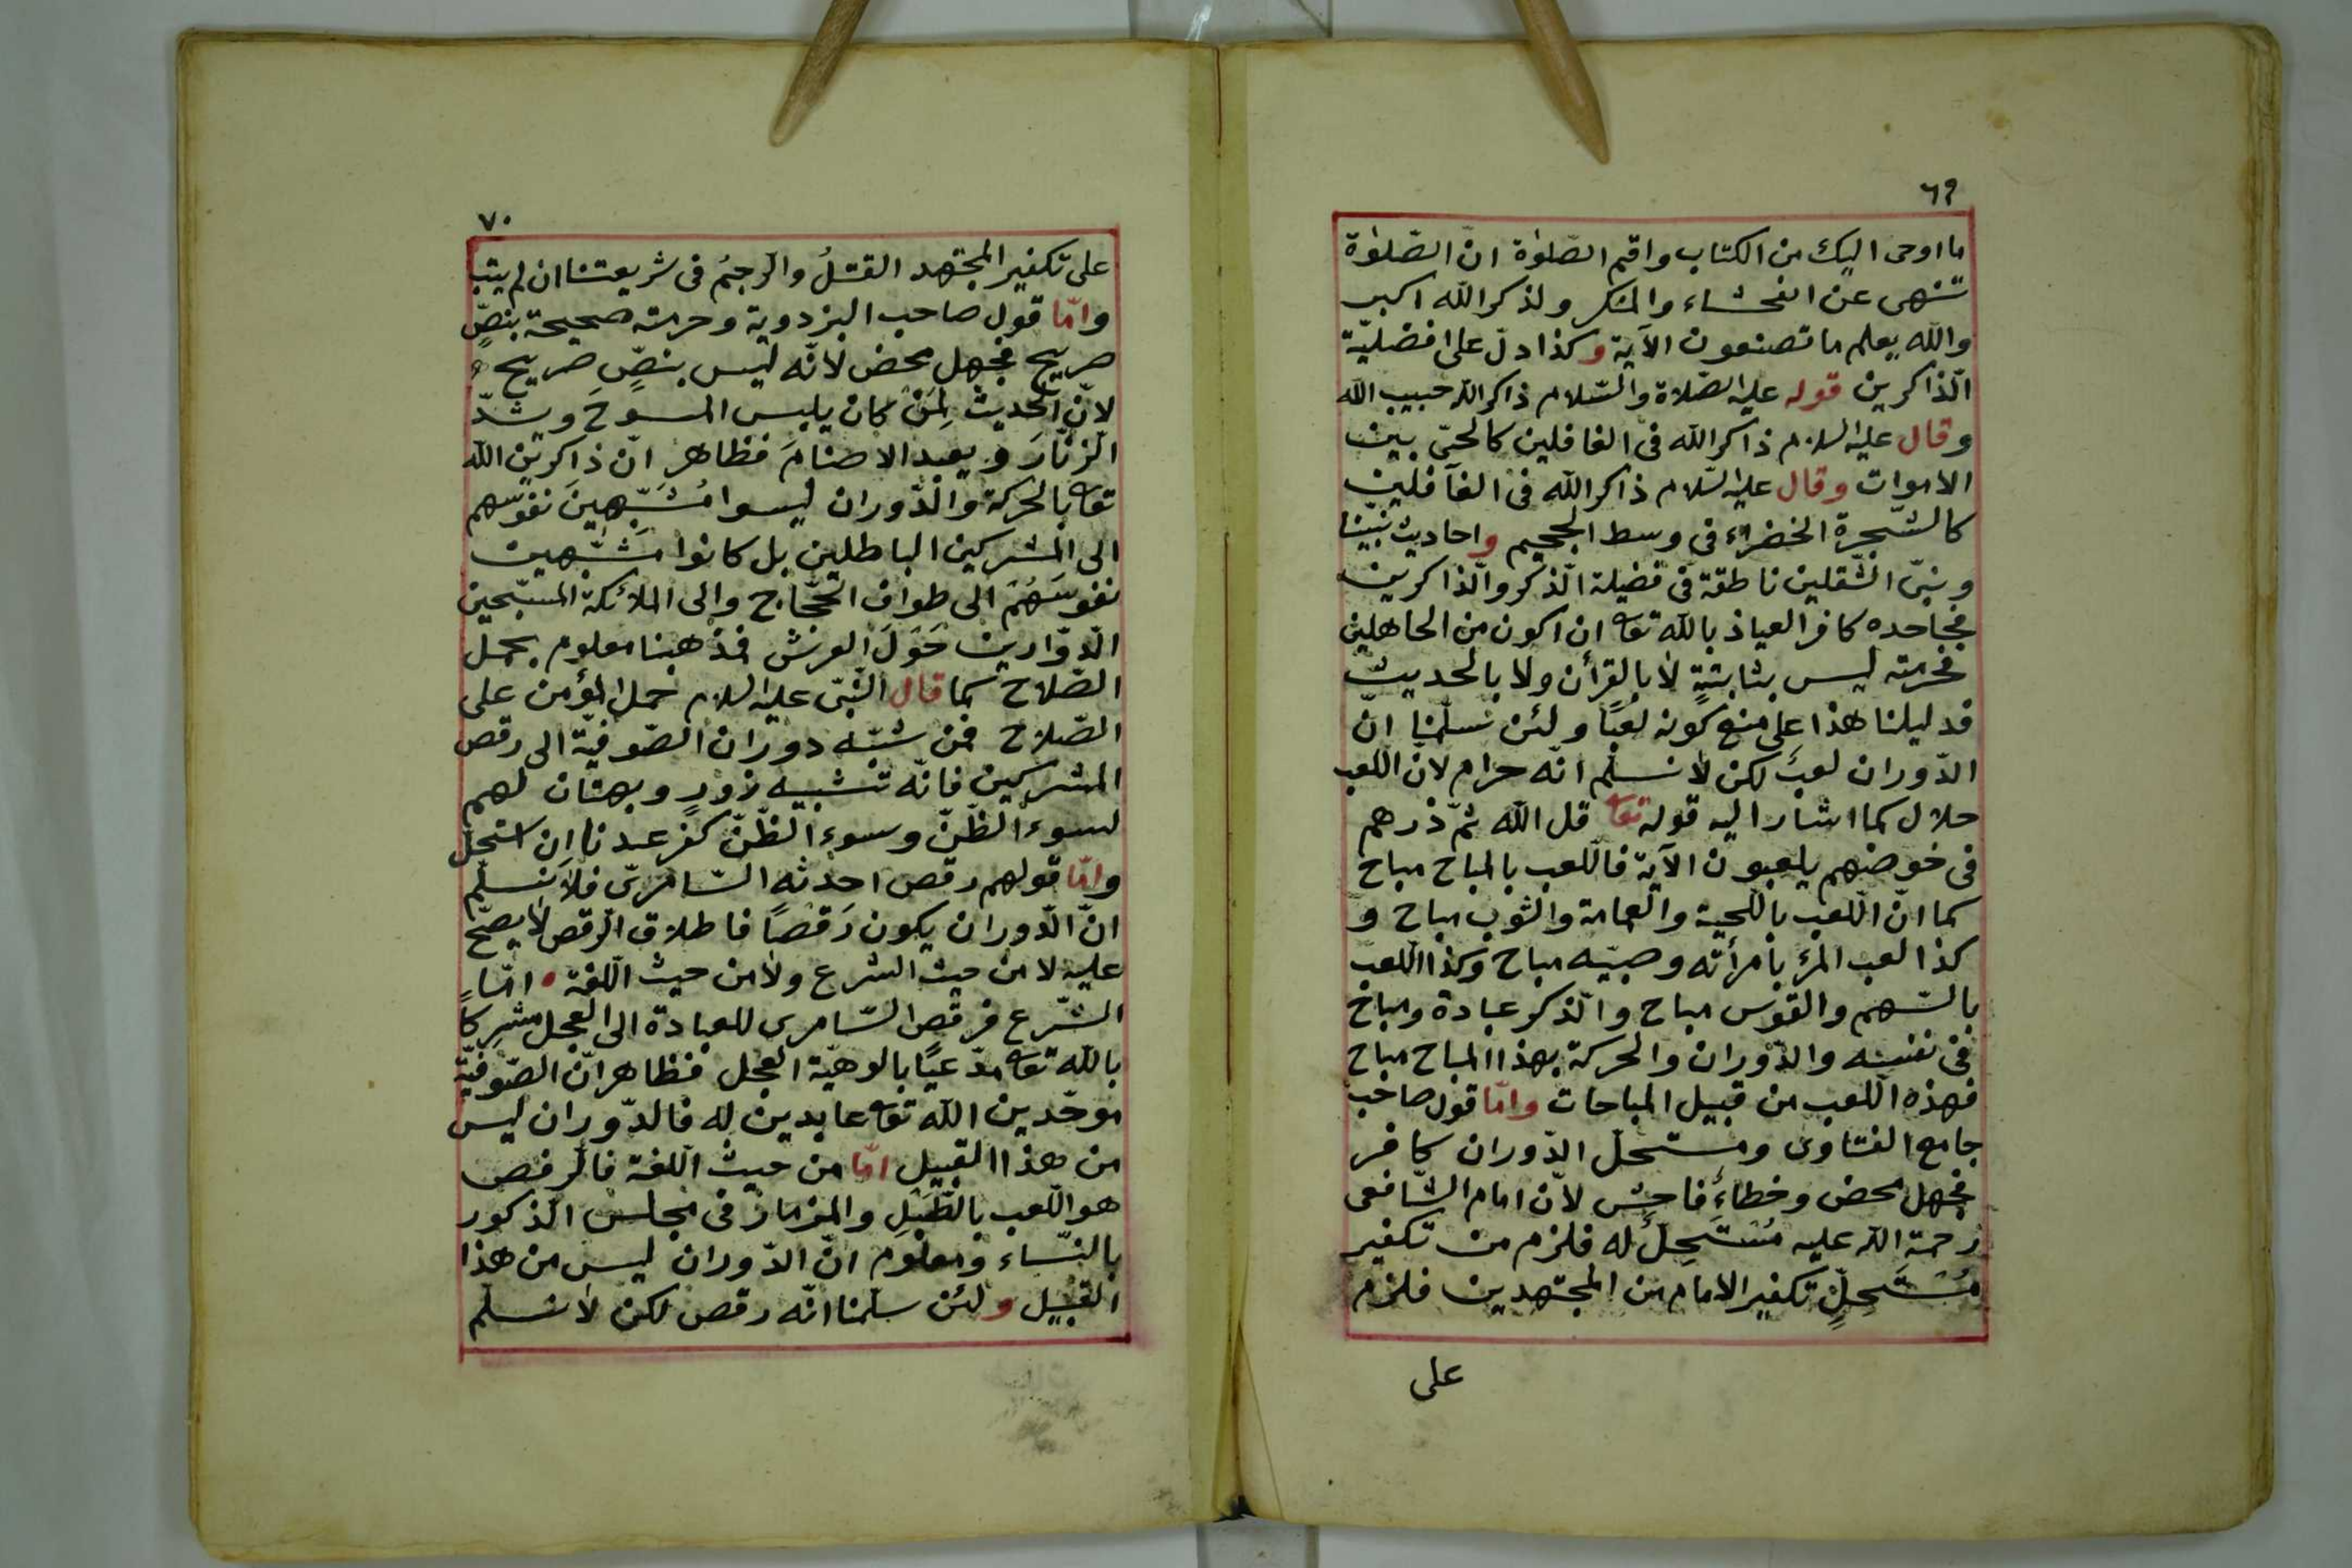 ٦٩
ما اوحى اليك من الكتاب واقم الصّلوٰة انّ الصّلوٰة
تنهى عن الفحشاء والمنكر ولذكر الله اكبر
والله يعلم ما تصنعون الآية وكذا دلّ على افضليّة
الذّاكرين قوله عليه الصّلاة والسّلام ذاكر الله حبيب الله
وقال عليه السلام ذاكر الله فى الغافلين كالحىّ بين
الاموات وقال عليه السّلام ذاكر الله فى الغافلين
كالشّجرة الخضراء فى وسط الجحيم واحاديث نبيّنا
ونبىّ الثّقلين ناطقة فى فضيلة الذّكر والذّاكرين
فجاحده كافر العياذ بالله تعا ان اكون من الجاهلين
فحرمته ليس بثابتةٍ لا بالقرأن ولا بالحديث
فدليلنا هذا على منع كونه لعبًا ولئن سلّمنا انّ
الدّوران لعبٌ لكن لا نسلّم انّه حرام لانّ اللعب
حلال كما اشار اليه قوله تعا قل الله ثمّ ذرهم
فى خوضهم يلعبون الآية فاللعب بالمباح مباح
كما انّ اللعب باللحية والعمامة والثوب مباح و
كذا لعب المرء بامرأته وصبيّه مباح وكذا اللعب
بالسّهم والقوس مباح والذّكر عبادة ومباح
فى نفسه والدّوران والحركة بهذا المباح مباح
فهذه اللعب من قبيل المباحات وامّا قول صاحب
جامع الفتاوى ومستحلّ الدّوران كافر
فجهل محض وخطاءٌ فاحش لانّ امام الشّافعى
رحمة الله عليه مُسْتَحِلٌّ له فلزم من تكفير
مُسْتَحِلٍّ تكفير الامام من المجتهدين فلزم
على
٧٠
على تكفير المجتهد القتلُ والرّجمُ فى شريعتنا ان لم يتب
وامّا قول صاحب البزدوية وحرمته صحيحة بنصٍّ
صريح فجهل محض لانّه ليس بنصٍّ صريح
لانّ الحديث لِمَنْ كان يلبس المسوحَ وشدّ
الزنّارَ ويعبد الاصنامَ فظاهر انّ ذاكرين الله
تعا بالحركة والدّوران ليسوا مُشَبِّهِينَ نفوسهم
الى المشركين الباطلين بل كانوا مُشَبِّهين
نفوسَهُمْ الى طواف الحجّاج والى الملائكة المسبّحين
الدّوّارين حَوْلَ العرش فمذهبنا معلوم بحمل
الصّلاح كما قال النّبىّ عليه السلام حمل المؤمن على
الصّلاح فمن شبّه دوران الصّوفيّة الى رقص
المشركين فانّه تشبيه زورٍ وبهتان لهم
لسوء الظّنّ وسوء الظّنّ كفر عندنا اِن استحلّ
وامّا قولهم رقص احدثه السّامرىّ فلا نسلّم
انّ الدّوران يكون رَقْصًا فاطلاق الرّقص لا يصحّ
عليه لا من حيث الشرع ولا من حيث اللّغة امّا
الشّرع فرقص السّامرى للعبادة الى العجل مشركًا
بالله تعا مدّعيًا بالوهيّة العجل فظاهر انّ الصّوفيّة
موحّدين الله تعا عابدين له فالدّوران ليس
من هذا القبيل امّا من حيث اللّغة فالرقص
هو اللّعب بالطّبْلِ والمزمار فى مجلس الذّكور
بالنّساء ومعلوم انّ الدّوران ليس من هذا
القبيل ولئن سلّمنا انّه رقص لكن لا نسلّم